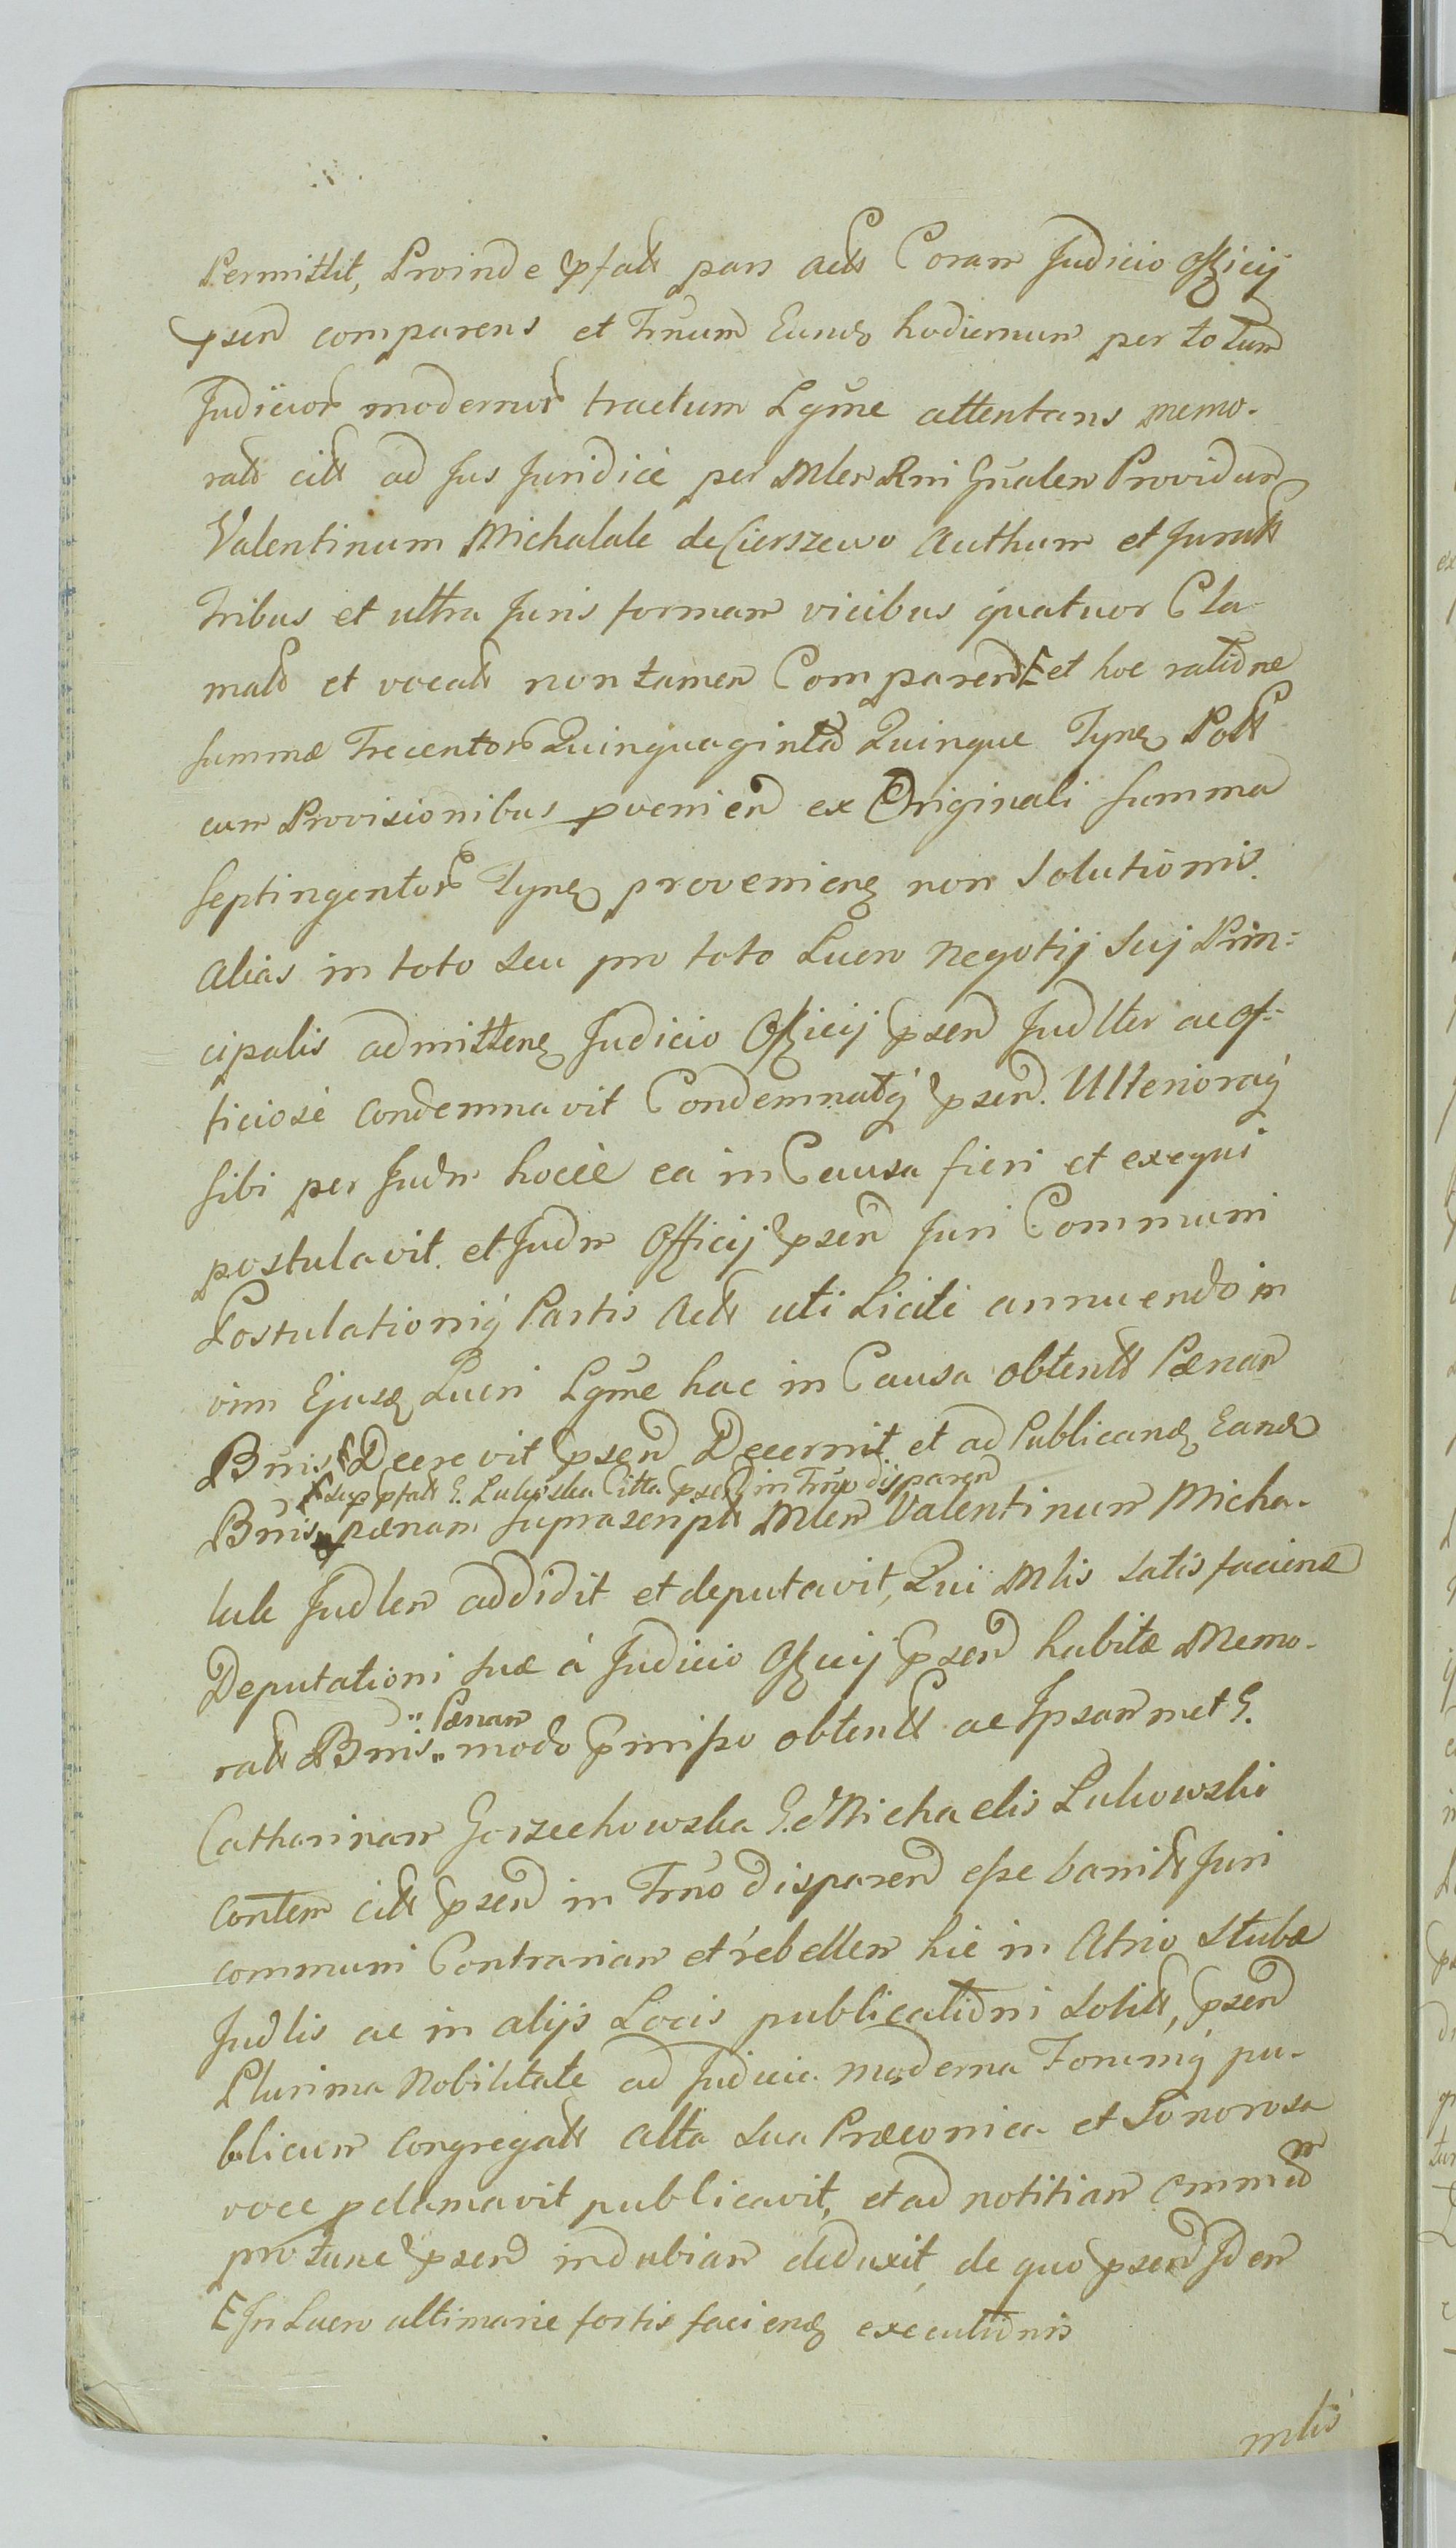 Permittit, Proinde psats pars acts Coram Judicio Officij
psen comparens et Trnum Eundq hodiernum per totum
Judicior modernor tractum Lgme attentans memo-
rats cits ad Jus Juridice per Mlem Rni Gnalem Providum
Valentinum Michalak de Cierszewo Authum et Jurats
Tribus et ultra Juris formam vicibus quatuor Cla-
mats et vocats non tamen Comparen E et hoc ratione
summæ Trecentor Quinquaginta Quinque Tynf Pols
cum Provisionibus pvenien ex Originali summa
septingentor Tynf provenienq non solutionis.
Alias in toto seu pro toto Lucro negotij Suj Prin-
cipalis admittenq Judicio Officij psen Judlter ac of-
ficiose condemnavit Condemnatq psen. Ulterioraq
sibi per Judm hocce ea in Causa fieri et exequi
postulavit. et Judm Officij psen Juri Communi
Postulationiq Partis Acts uti Licite annuendo in
vim Ejusq Lucri Lgme hac in Causa obtents Pænam
Bnis Decrevit psen Decernit et ad Publicandq Eand
sup psats G. Lukowska Citta psen in Trno disparen
Bnis pænam suprascripts Mlem Valentinum Micha-
lak Judlem addidit et deputavit, Qui Mlis satisfaciens
Deputationi suæ à Judicio Officij psen habitæ Memo-
Pænam
rats Bnis modo pmisso obtents ac Ipsammet G.
Catharinam Gorzechowska G. Michaelis Lukowski
Contem cits psen in Trno disparen esse banits Juri
communi Contrariam et rebellem hic in Atrio Stubæ
Judlis ac in alijs Locis publicationi solits, psen
Plurima Nobilitate ad Judicia moderna Forumq pu-
blicum Congregats alta sua Præconica et Sonorosa
voce pclamavit publicavit, et ad notitiam omnium
protunc psen indubiam deduxit, de quo psen Idem
E In Lucro ultimarie fortis faciendq executionis
mlis